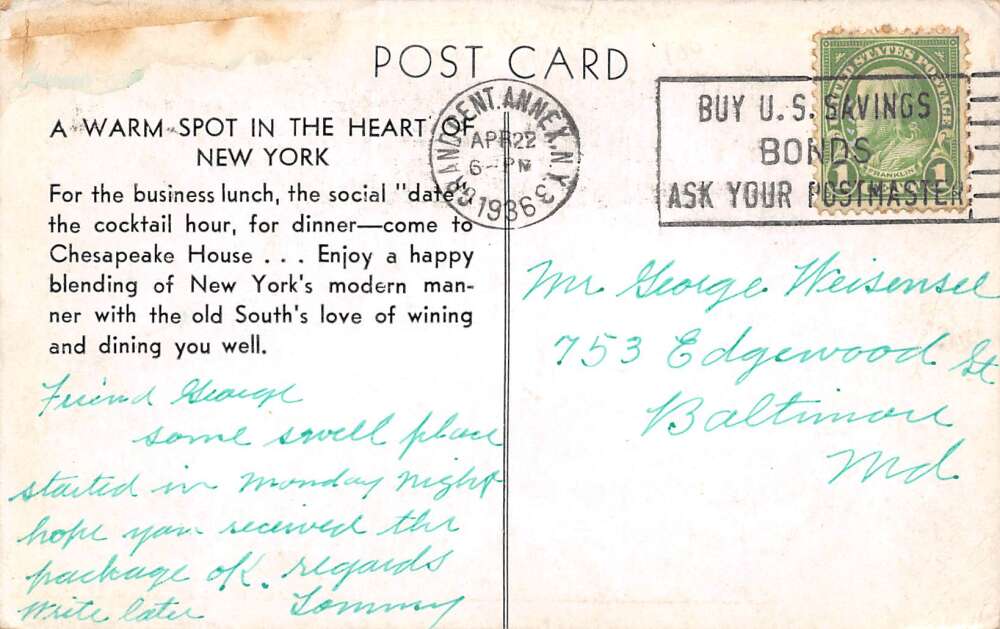 POST CARD
A WARM SPOT IN THE HEART OF
NEW YORK
For the business lunch, the social "date",
the cocktail hour, for dinner—come to
Chesapeake House . . . Enjoy a happy
blending of New York's modern man-
ner with the old South's love of wining
and dining you well.
Friend George
some swell place
started in Monday night
hope you received the
package OK. regards
Write later Tommy
GRAND CENT. ANNEX, N.Y.
APR 22
6-PM
1936
3
BUY U.S. SAVINGS
BONDS
ASK YOUR POSTMASTER
UNITED STATES POSTAGE
FRANKLIN
1 1
Mr George Weisensel
753 Edgewood St
Baltimore
Md.